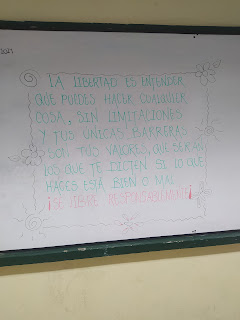 2021
LA LIBERTAD ES ENTENDER
QUE PUEDES HACER CUALQUIER
COSA, SIN LIMITACIONES
Y TUS ÚNICAS BARRERAS
SON TUS VALORES, QUE SERÁN
LOS QUE TE DICTEN SI LO QUE
HACES ESTÁ BIEN O MAL
¡SE LIBRE RESPONSABLEMENTE!